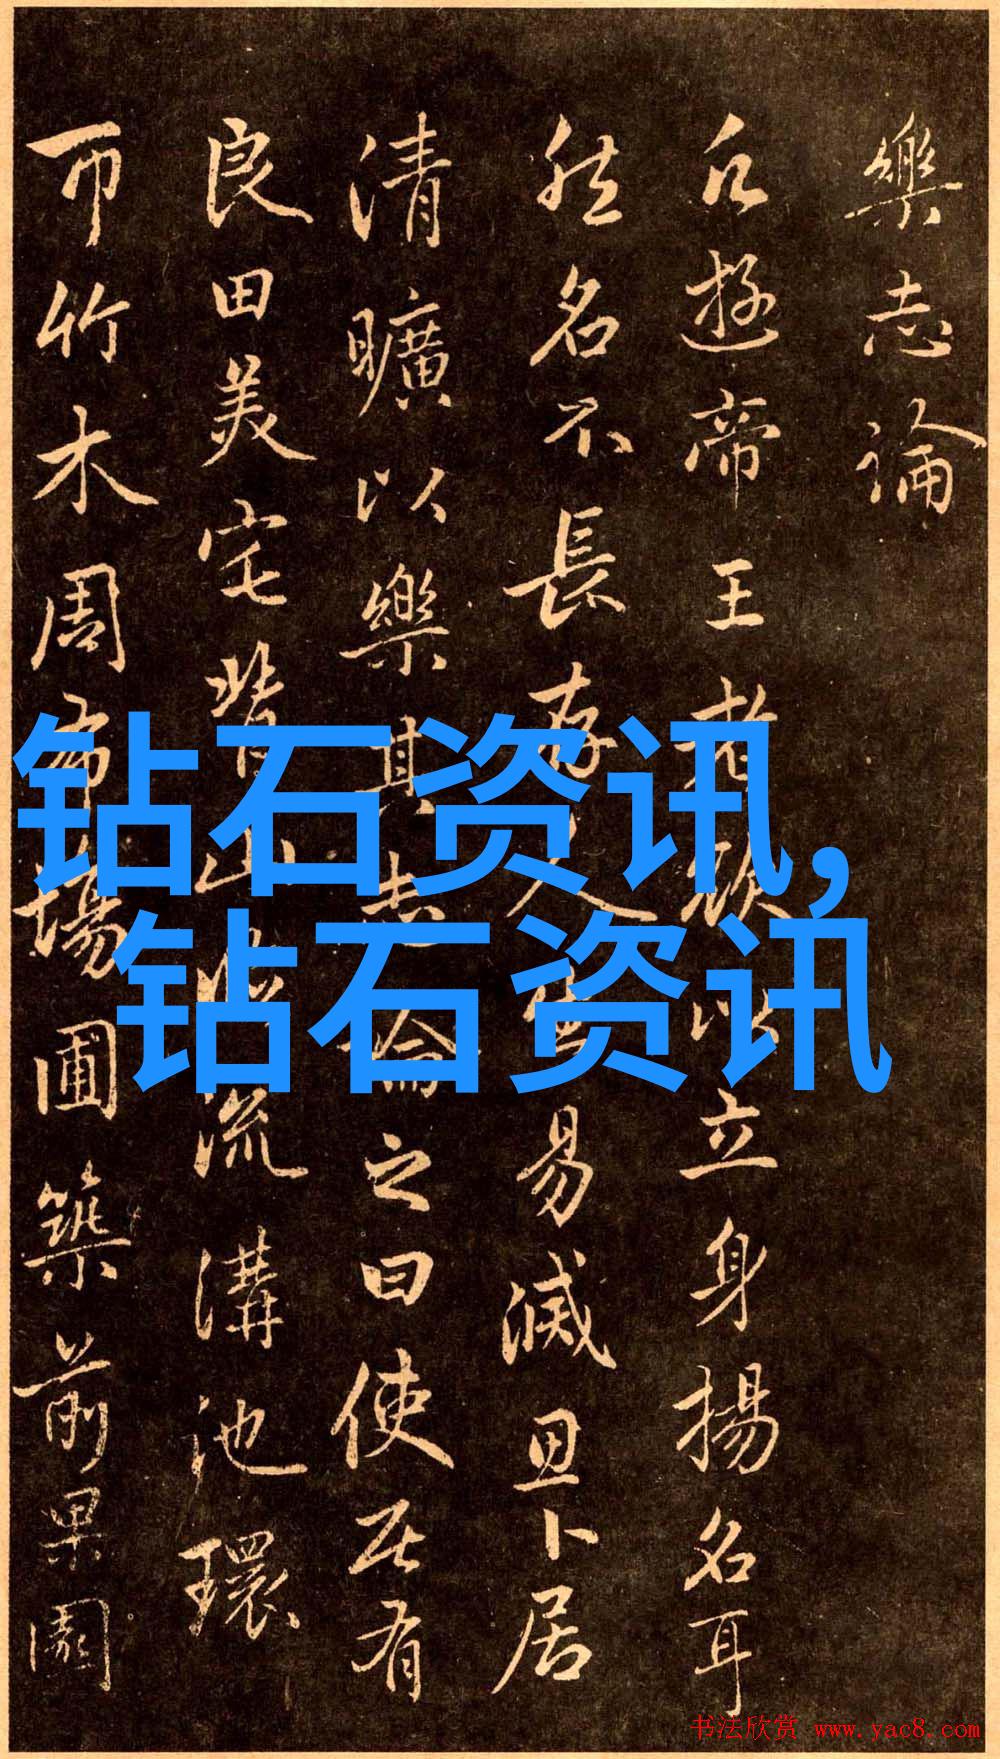 樂志論
凡遊帝王者欲以立身揚名耳
然名不長存人生易滅且卜居
清曠以樂其志論之曰使居有
良田美宅背山臨流溝池環
帀竹木周布場圃築前果園
钻石资讯,
钻石资讯
书法欣赏 www.yac8.com